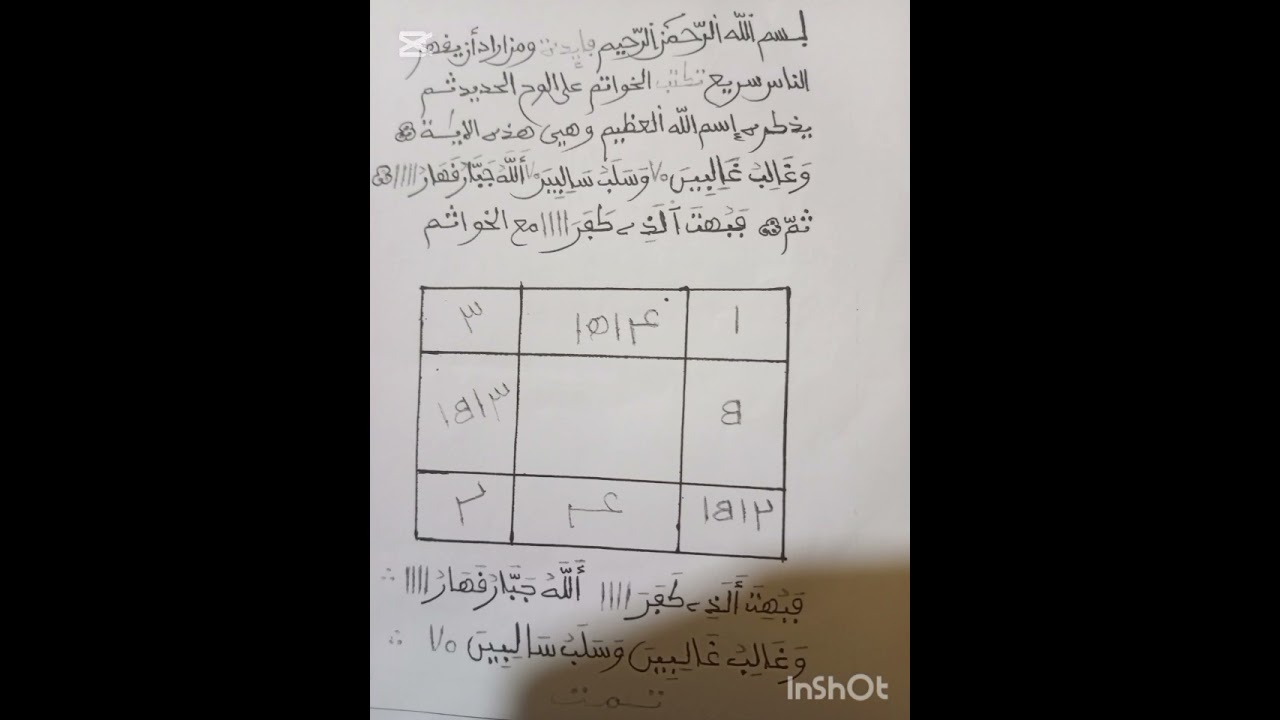 بسم الله الرحمن الرحيم فإيدة ومن اراد أن يقهر
الناس سريع تكتب الخواتم على الوح الحديد ثم
يذكر إسم الله العظيم وهي هذه الاية
وَغَالِبُ غَالِبِينَ ٧٥ وَسَلَبُ سَالِبِينَ ٧٥ أَللَّهُ جَبَّارُ قَهَارُ ||||
ثمّ فَبُهِتَ ألَّذِي كَفَرَ |||| مع الخواتم
١ ٣
B
٢ عـ
فَبُهِتَ أَلَّذِي كَفَرَ |||| أَللَّهُ جَبَّارُ قَهَارُ ||||
وَغَالِبُ غَالِبِينَ وَسَلَبُ سَالِبِينَ ٧٥
تمت
InShOt